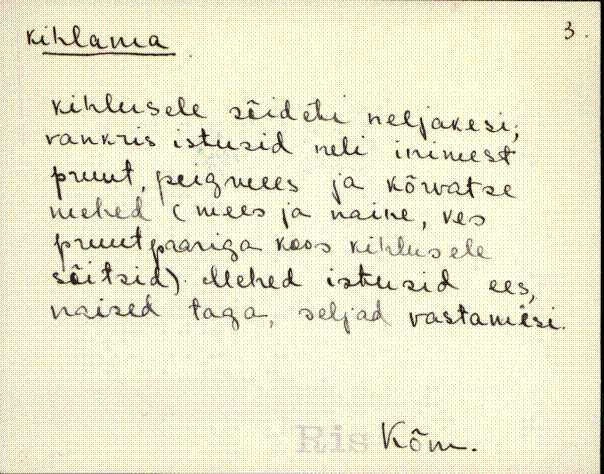 kihlama
3.
kihlusele sõideti neljakesi;
vankris istusid neli inimest
pruut, peigmees ja kõrvatse
mehed (mees ja naine, kes
pruutpaariga koos kihlusele
sõitsid). Mehed istusid ees,
naised taga, seljad vastamisi.
Ris Kõm.